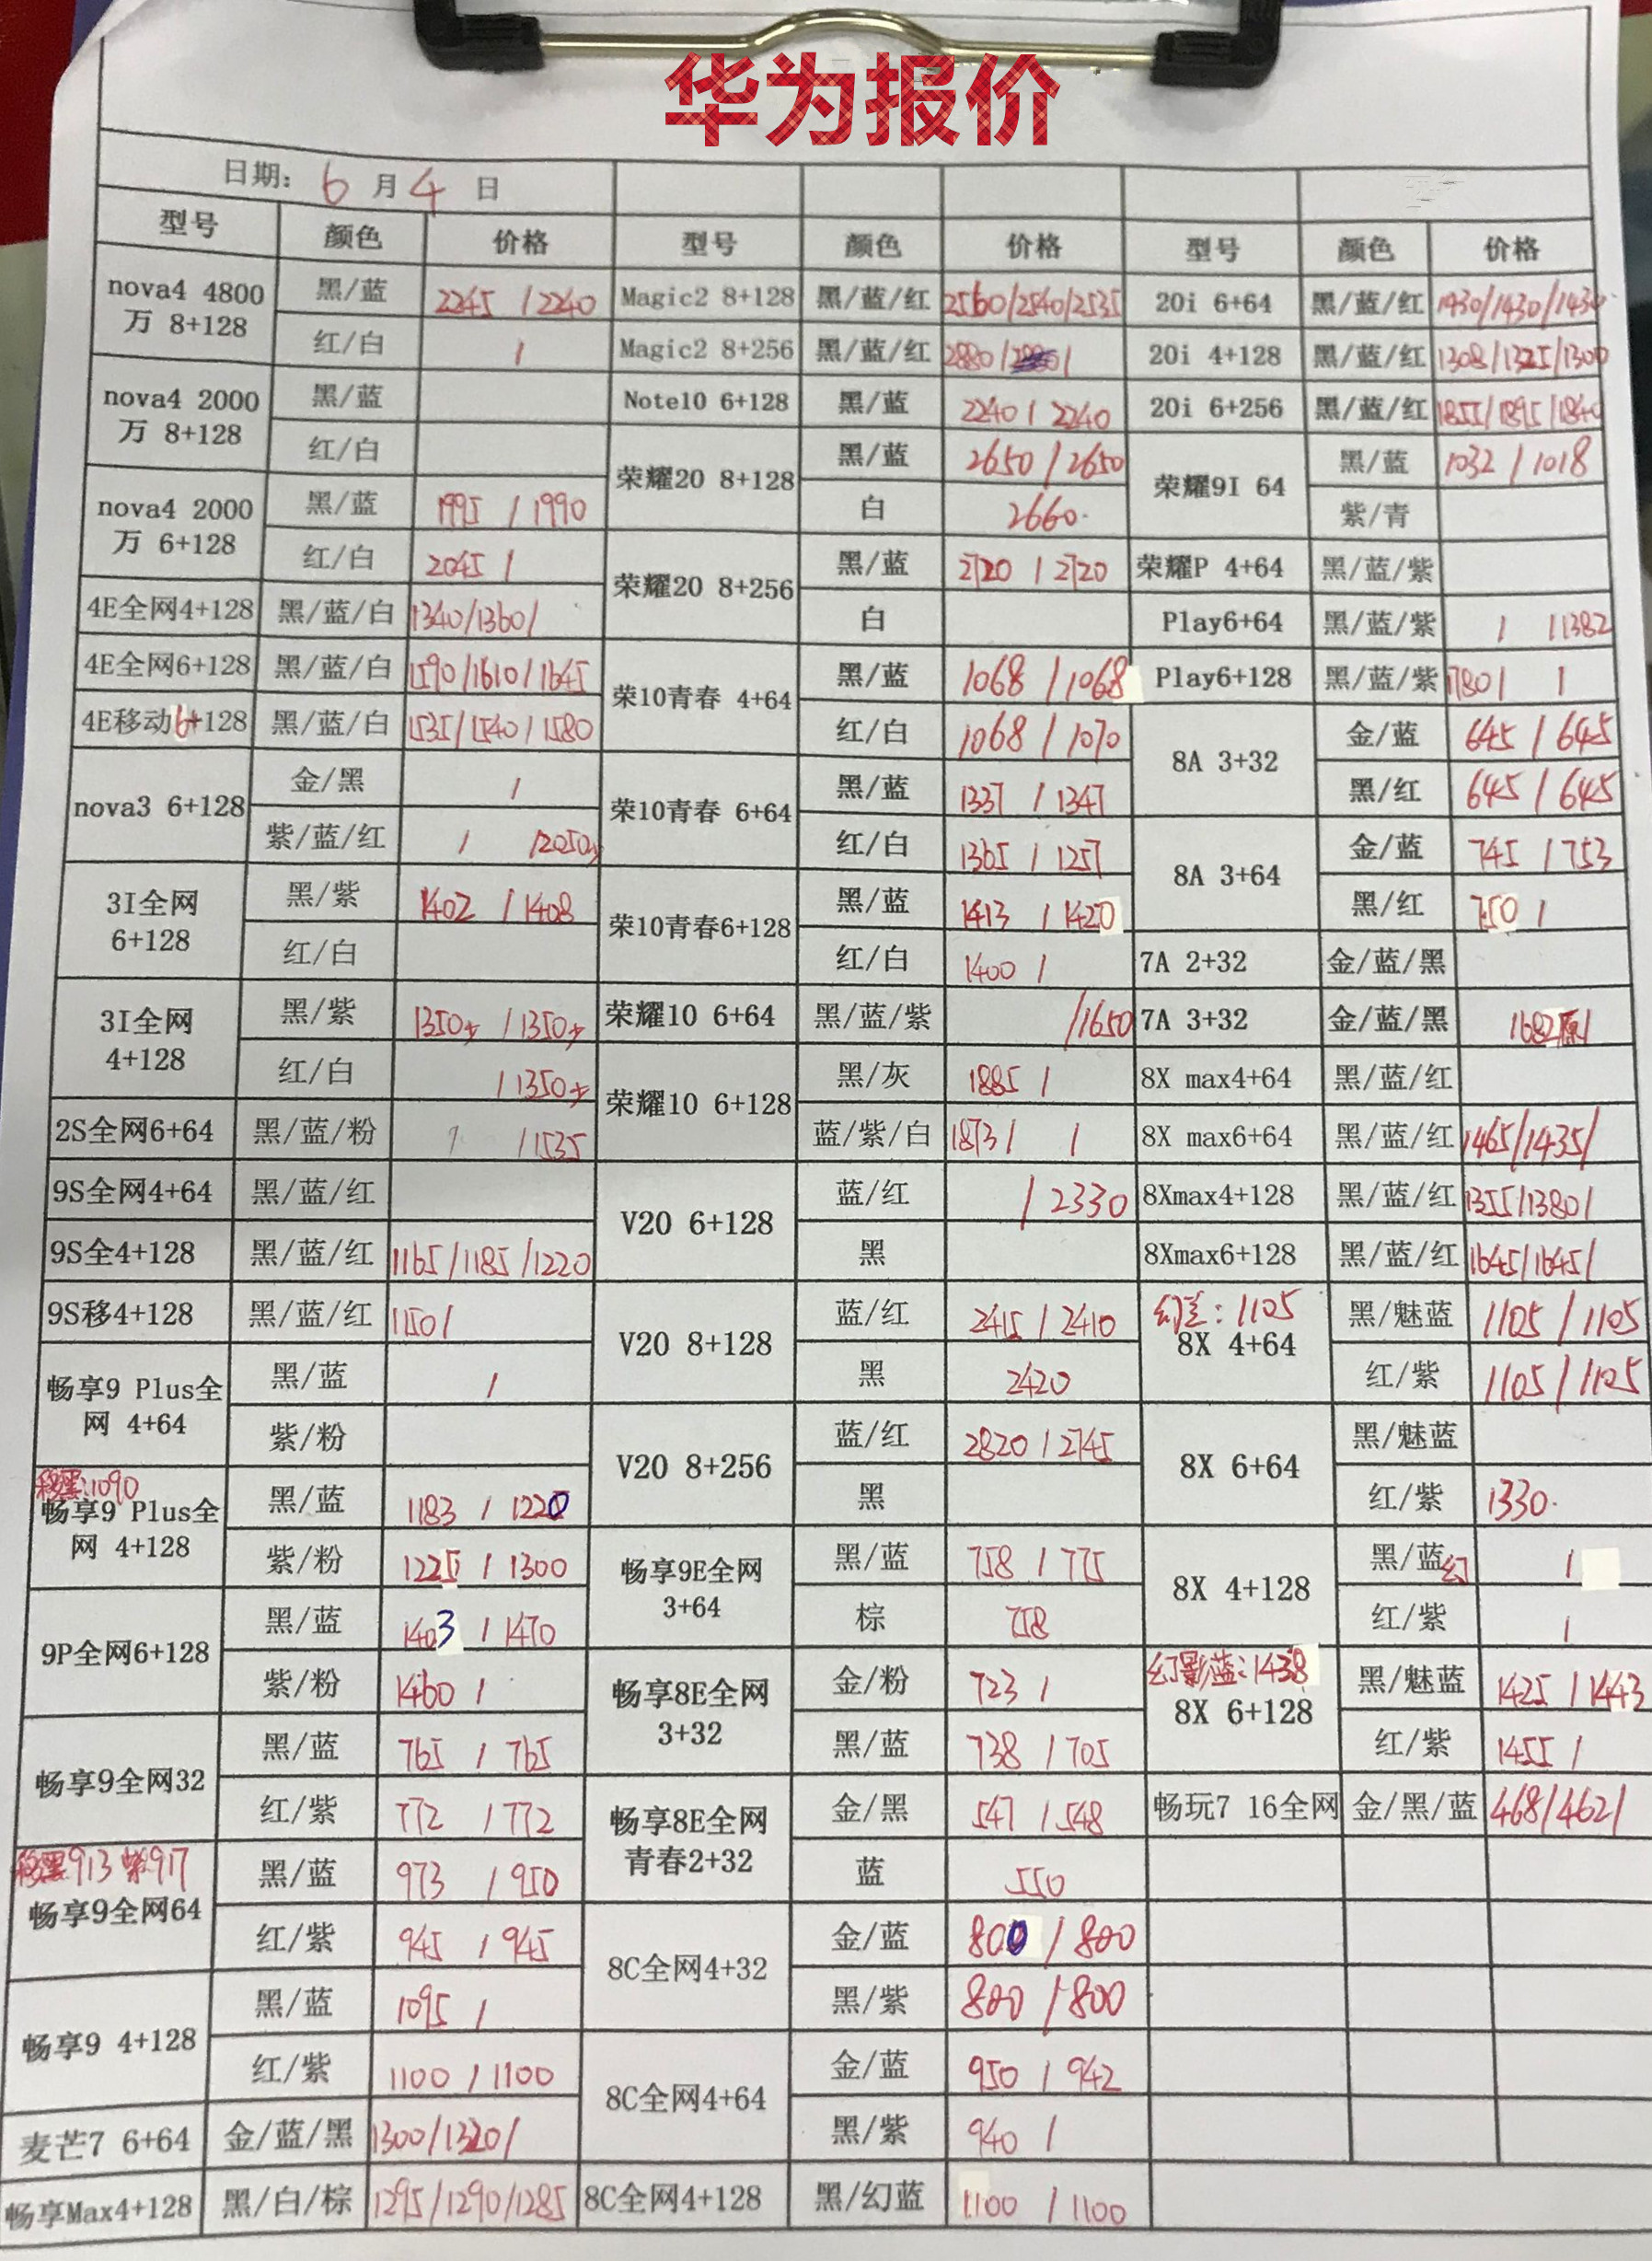 华为报价
日期： 6 月 4 日
型号 颜色 价格 型号 颜色 价格 型号 颜色 价格
nova4 4800万 8+128 黑/蓝 2245 / 2240 Magic2 8+128 黑/蓝/红 2560/2540/2535 20i 6+64 黑/蓝/红 1430/1430/1430
红/白 / Magic2 8+256 黑/蓝/红 2880/ / 20i 4+128 黑/蓝/红 1308/1325/1300
nova4 2000万 8+128 黑/蓝 Note10 6+128 黑/蓝 2240 / 2240 20i 6+256 黑/蓝/红 1855/1895/1840
红/白 荣耀20 8+128 黑/蓝 2650 / 2650 荣耀9I 64 黑/蓝 1032 / 1018
nova4 2000万 6+128 黑/蓝 1995 / 1990 白 2660 紫/青
红/白 2045 / 荣耀20 8+256 黑/蓝 2720 / 2720 荣耀P 4+64 黑/蓝/紫
4E全网4+128 黑/蓝/白 1340/1360/ 白 Play6+64 黑/蓝/紫 / /1382
4E全网6+128 黑/蓝/白 1590/1610/1645 荣10青春 4+64 黑/蓝 1068 / 1068 Play6+128 黑/蓝/紫 1780/ /
4E移动6+128 黑/蓝/白 1535/1540/1580 红/白 1068 / 1070 8A 3+32 金/蓝 645 / 645
nova3 6+128 金/黑 / 荣10青春 6+64 黑/蓝 1337 / 1347 黑/红 645 / 645
紫/蓝/红 / /2050 红/白 1365 / 1257 8A 3+64 金/蓝 745 / 753
3I全网 6+128 黑/紫 1402 / 1408 荣10青春6+128 黑/蓝 1413 / 1420 黑/红 750 /
红/白 红/白 1400 / 7A 2+32 金/蓝/黑
3I全网 4+128 黑/紫 1350 / 1350 荣耀10 6+64 黑/蓝/紫 /1650 7A 3+32 金/蓝/黑 1682原/
红/白 / 1350 荣耀10 6+128 黑/灰 1885 / 8X max4+64 黑/蓝/红
2S全网6+64 黑/蓝/粉 / /1535 蓝/紫/白 1873/ / 8X max6+64 黑/蓝/红 1465/1435/
9S全网4+64 黑/蓝/红 V20 6+128 蓝/红 / 2330 8Xmax4+128 黑/蓝/红 1355/1380/
9S全4+128 黑/蓝/红 1165/1185/1220 黑 8Xmax6+128 黑/蓝/红 1645/1645/
9S移4+128 黑/蓝/红 1150/ V20 8+128 蓝/红 2415 / 2410 : 1105 8X 4+64 黑/魅蓝 1105 / 1105
畅享9 Plus全网 4+64 黑/蓝 / 黑 2420 红/紫 1105 / 1125
紫/粉 V20 8+256 蓝/红 2820 / 2745 8X 6+64 黑/魅蓝
移黑:1090 畅享9 Plus全网 4+128 黑/蓝 1183 / 1220 黑 红/紫 1330
紫/粉 1225 / 1300 畅享9E全网 3+64 黑/蓝 758 / 775 8X 4+128 黑/蓝幻 /
9P全网6+128 黑/蓝 1403 / 1470 棕 758 红/紫 /
紫/粉 1460 / 畅享8E全网 3+32 金/粉 723 / 幻影蓝:1438 8X 6+128 黑/魅蓝 1425 / 1443
畅享9全网32 黑/蓝 765 / 765 黑/蓝 738 / 705 红/紫 1455 /
红/紫 772 / 772 畅享8E全网青春2+32 金/黑 547 / 548 畅玩7 16全网 金/黑/蓝 468/462/
移黑913 紫917 畅享9全网64 黑/蓝 973 / 950 蓝 550
红/紫 945 / 945 8C全网4+32 金/蓝 800 / 800
畅享9 4+128 黑/蓝 1095 / 黑/紫 800 / 800
红/紫 1100 / 1100 8C全网4+64 金/蓝 950 / 942
麦芒7 6+64 金/蓝/黑 1300/1320/ 黑/紫 940 /
畅享Max4+128 黑/白/棕 1295/1290/1285 8C全网4+128 黑/幻蓝 1100 / 1100